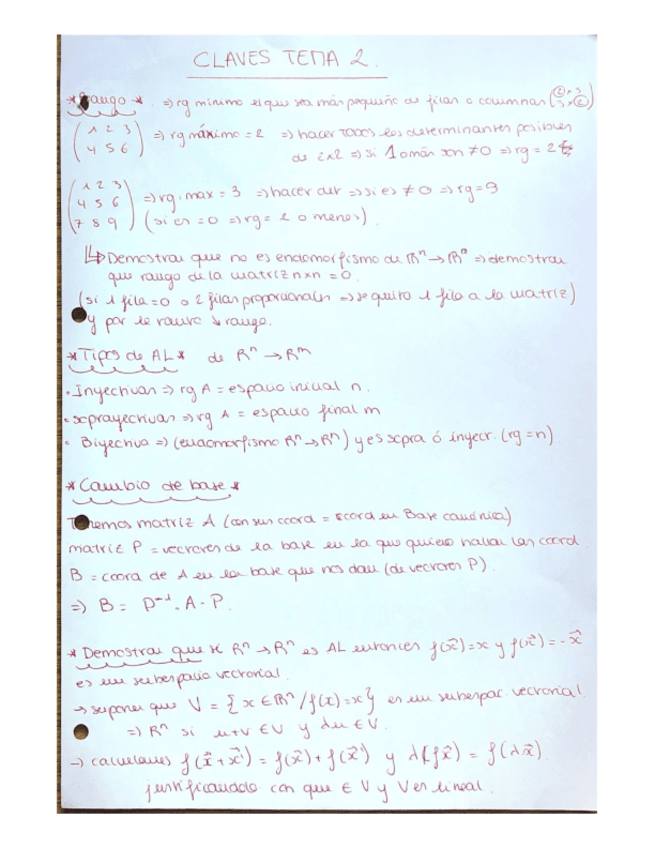 CLAVES TEMA 2.
* Rango * ⇒ rg mínimo el que sea más pequeño de filas o columnas
(1 2 3 / 4 5 6) ⇒ rg máximo = 2 ⇒ hacer todos los determinantes posibles
de 2x2 ⇒ si 1 o más son ≠0 ⇒ rg = 2
(1 2 3 / 4 5 6 / 7 8 9) ⇒ rg. max = 3 ⇒ hacer det ⇒ si es ≠ 0 ⇒ rg=3
(si es =0 ⇒ rg= 2 o menos).
↳ Demostrar que no es endomorfismo de ℝⁿ→ℝⁿ ⇒ demostrar
que rango de la matriz nxn = 0.
(si 1 fila=0 o 2 filas proporcionales ⇒ se quita 1 fila a la matriz)
y por lo tanto ↓ rango.
* Tipos de AL * de ℝⁿ → ℝᵐ
• Inyectivas ⇒ rg A = espacio inicial n.
• soprayectivas ⇒ rg A = espacio final m
• Biyectiva ⇒ (endomorfismo ℝⁿ→ℝⁿ) y es sopra ó inyec. (rg=n)
* Cambio de base *
Tenemos matriz A (con sus coord = coord en Base canónica)
matriz P = vectores de la base en la que quiero hallar las coord.
B = coord de A en la base que nos dan (de vectores P).
⇒ B = P⁻¹. A · P.
* Demostrar que si ℝⁿ → ℝⁿ es AL entonces f(x⃗)=x y f(x⃗) = -x⃗
es un subespacio vectorial.
→ suponer que V = {x ∈ ℝⁿ / f(x)=x} es un subespac. vectorial.
⇒ ℝⁿ si u+v ∈ V y λu ∈ V.
→ calculamos f(x⃗+x⃗') = f(x⃗)+f(x⃗') y λ(fx⃗) = f(λx⃗).
justificando con que ∈ V y V es lineal.